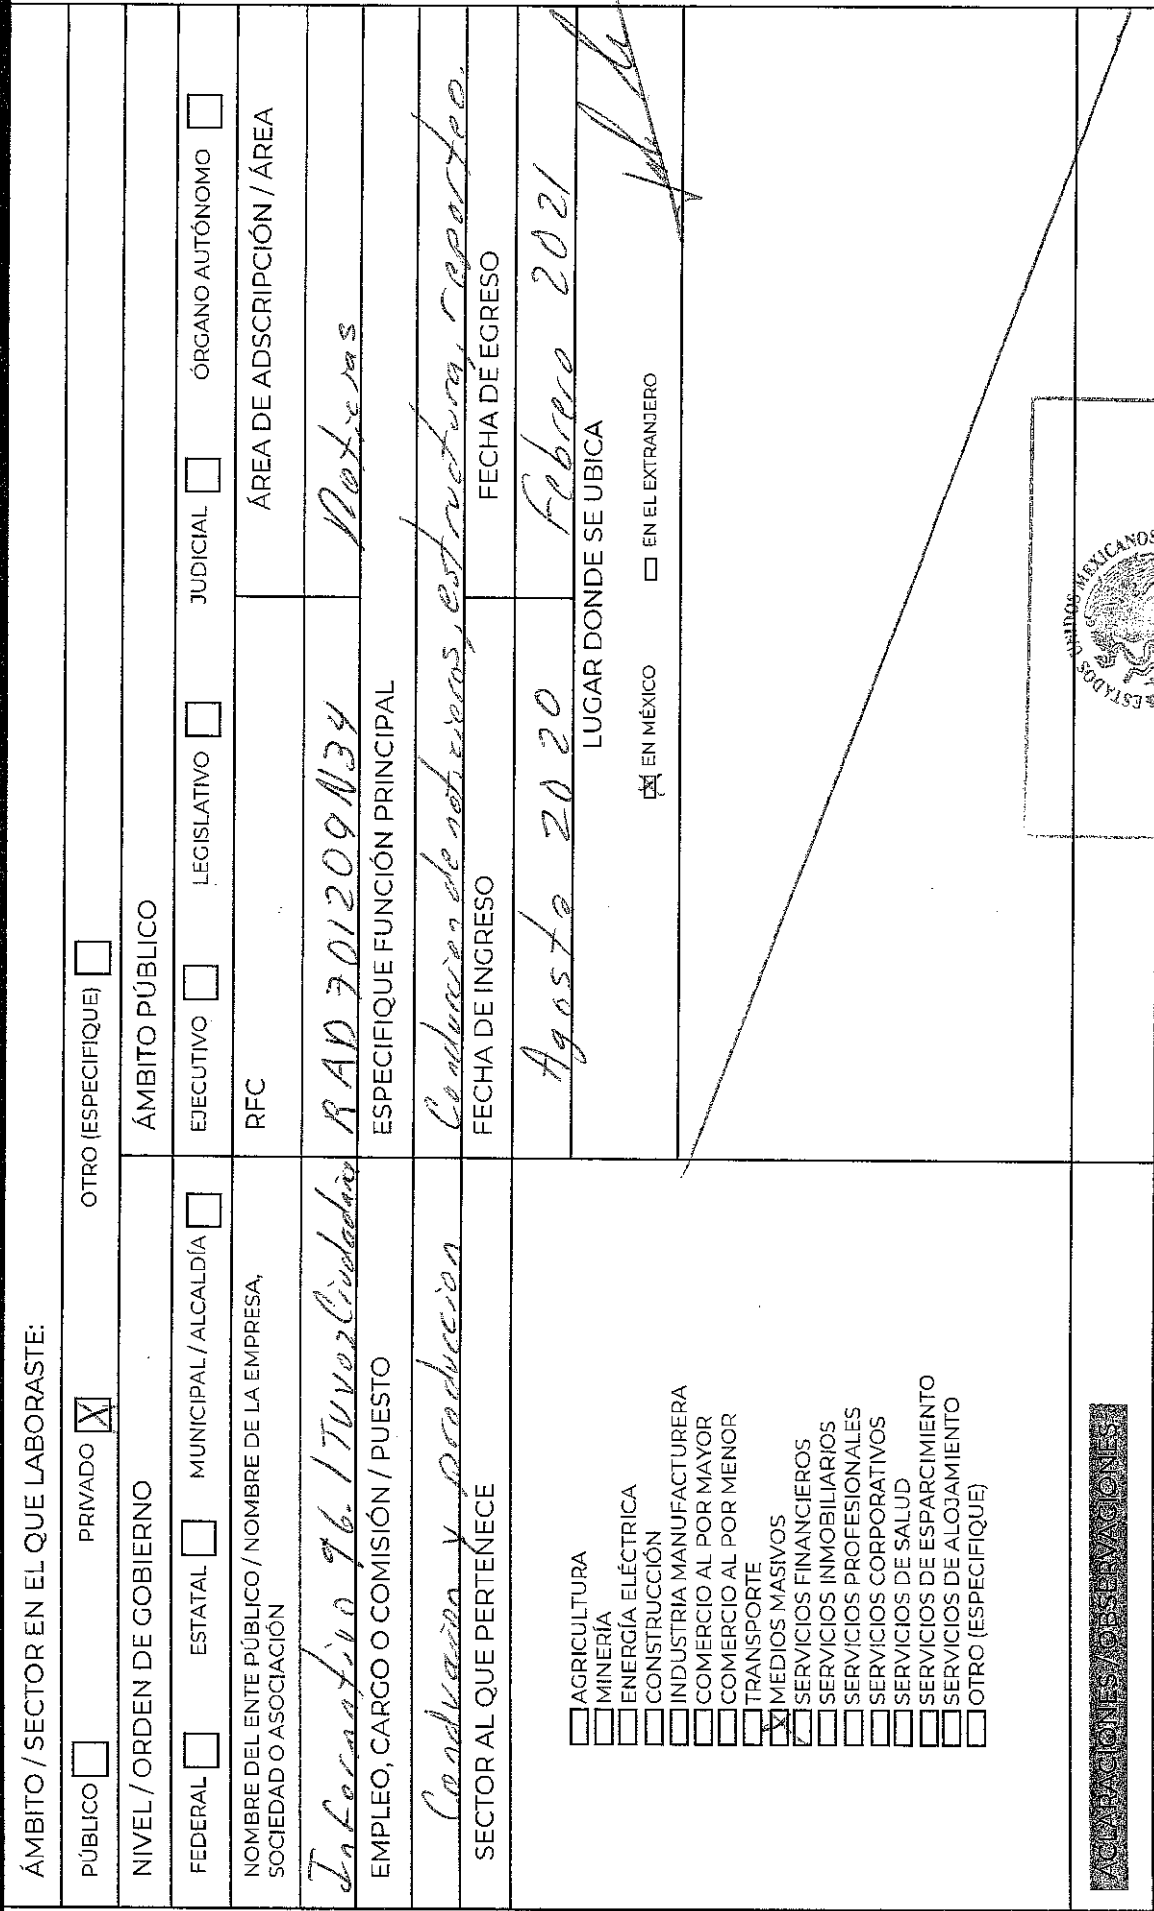 ÁMBITO / SECTOR EN EL QUE LABORASTE:
PÚBLICO ☐ PRIVADO ☒ OTRO (ESPECIFIQUE) ☐
NIVEL / ORDEN DE GOBIERNO
ÁMBITO PÚBLICO
FEDERAL ☐ ESTATAL ☐ MUNICIPAL / ALCALDÍA ☐ EJECUTIVO ☐ LEGISLATIVO ☐ JUDICIAL ☐ ÓRGANO AUTÓNOMO ☐
NOMBRE DEL ENTE PÚBLICO / NOMBRE DE LA EMPRESA,
SOCIEDAD O ASOCIACIÓN
RFC
ÁREA DE ADSCRIPCIÓN / ÁREA
Informativo 96.1 Tuvoz Ciudadana RAD701209N34 Noticias
EMPLEO, CARGO O COMISIÓN / PUESTO
ESPECIFIQUE FUNCIÓN PRINCIPAL
Conducción y produccion
Conduccion de noticieros, estructura, reporteo.
SECTOR AL QUE PERTENECE
FECHA DE INGRESO
FECHA DE EGRESO
Agosto 2020
Febrero 2021
LUGAR DONDE SE UBICA
☒ EN MÉXICO ☐ EN EL EXTRANJERO
☐ AGRICULTURA
☐ MINERÍA
☐ ENERGÍA ELÉCTRICA
☐ CONSTRUCCIÓN
☐ INDUSTRIA MANUFACTURERA
☐ COMERCIO AL POR MAYOR
☐ COMERCIO AL POR MENOR
☐ TRANSPORTE
☒ MEDIOS MASIVOS
☐ SERVICIOS FINANCIEROS
☐ SERVICIOS INMOBILIARIOS
☐ SERVICIOS PROFESIONALES
☐ SERVICIOS CORPORATIVOS
☐ SERVICIOS DE SALUD
☐ SERVICIOS DE ESPARCIMIENTO
☐ SERVICIOS DE ALOJAMIENTO
☐ OTRO (ESPECIFIQUE)
ACLARACIONES / OBSERVACIONES
ESTADOS UNIDOS MEXICANOS